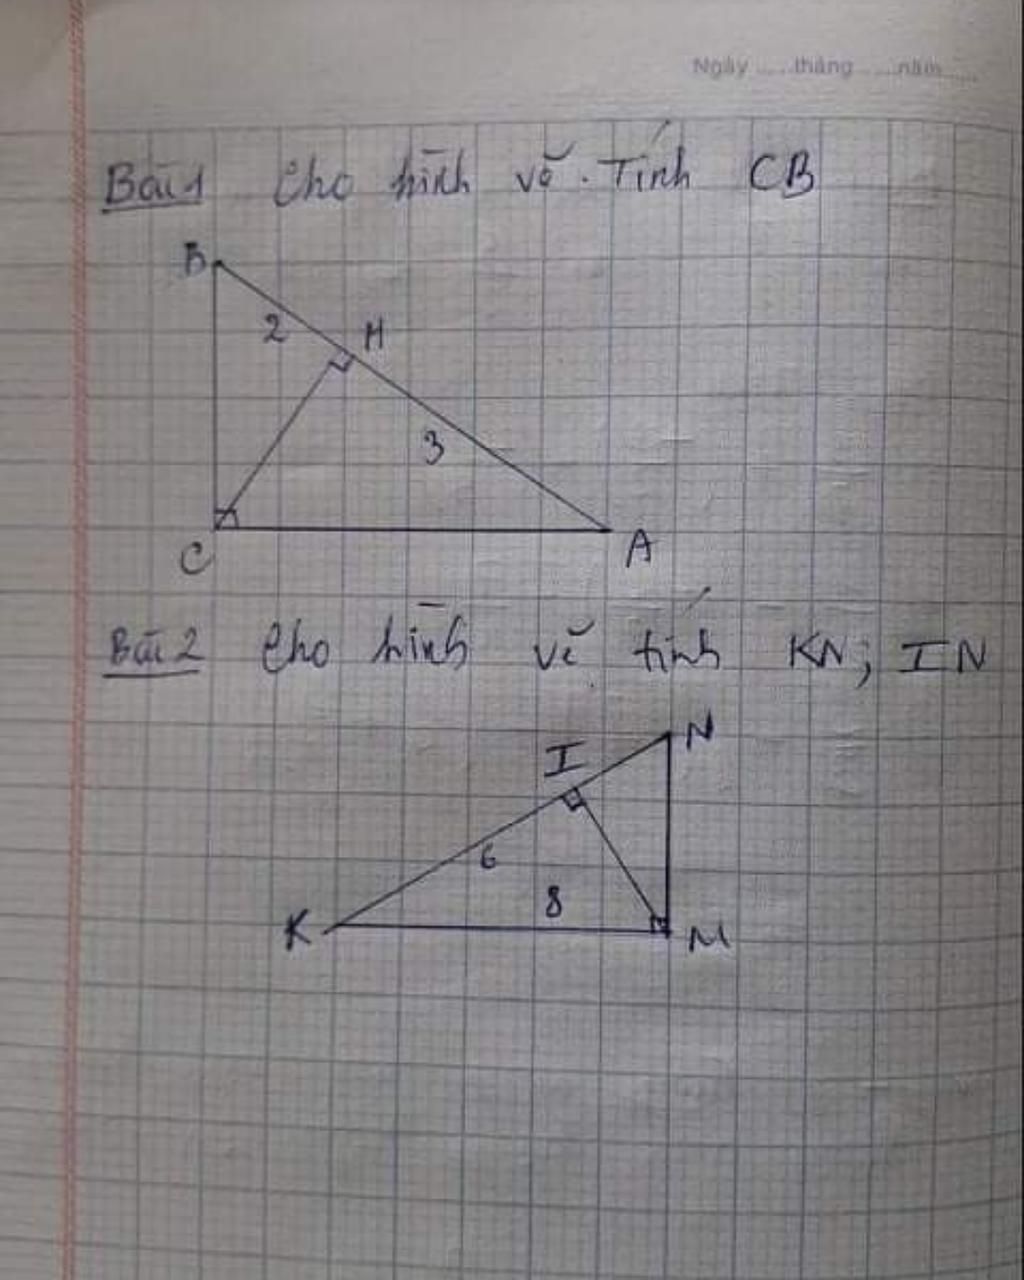 Ngày ......tháng ......năm ......
Bài 1 Cho hình vẽ. Tính CB
B
2
H
3
C
A
Bài 2 Cho hình vẽ tính KN; IN
N
I
6
8
K
M